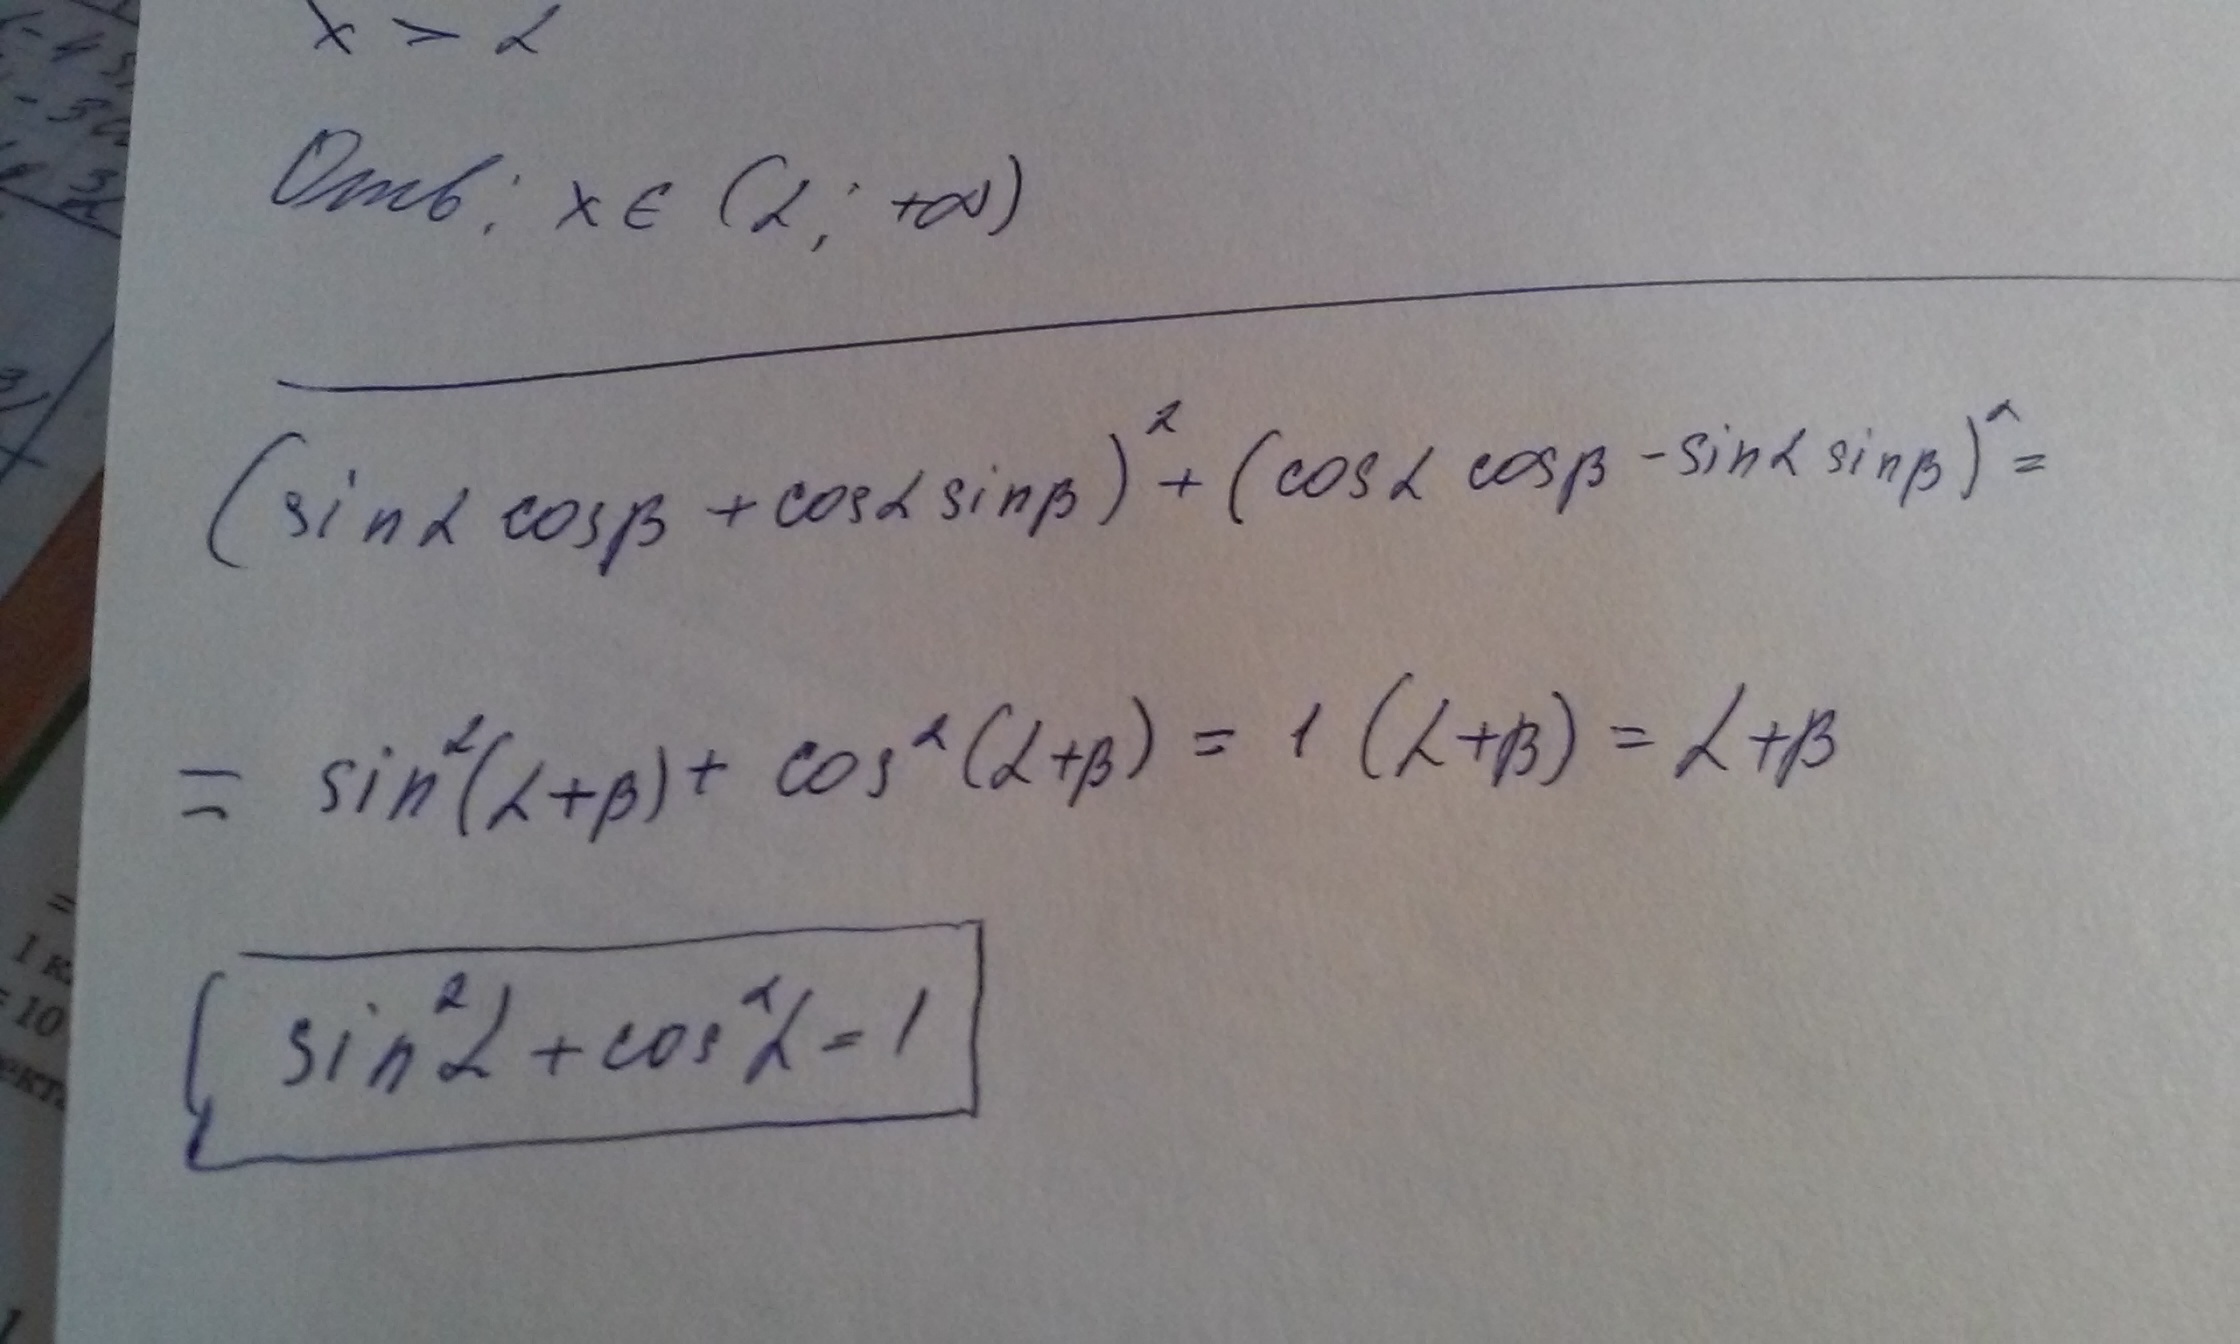 x > 2
Отв: x ∈ (2; +∞)
(sin α cos β + cos α sin β)² + (cos α cos β - sin α sin β)² =
= sin²(α+β) + cos²(α+β) = 1 (α+β) = α+β
sin²α + cos²α = 1
=
1 к
= 10